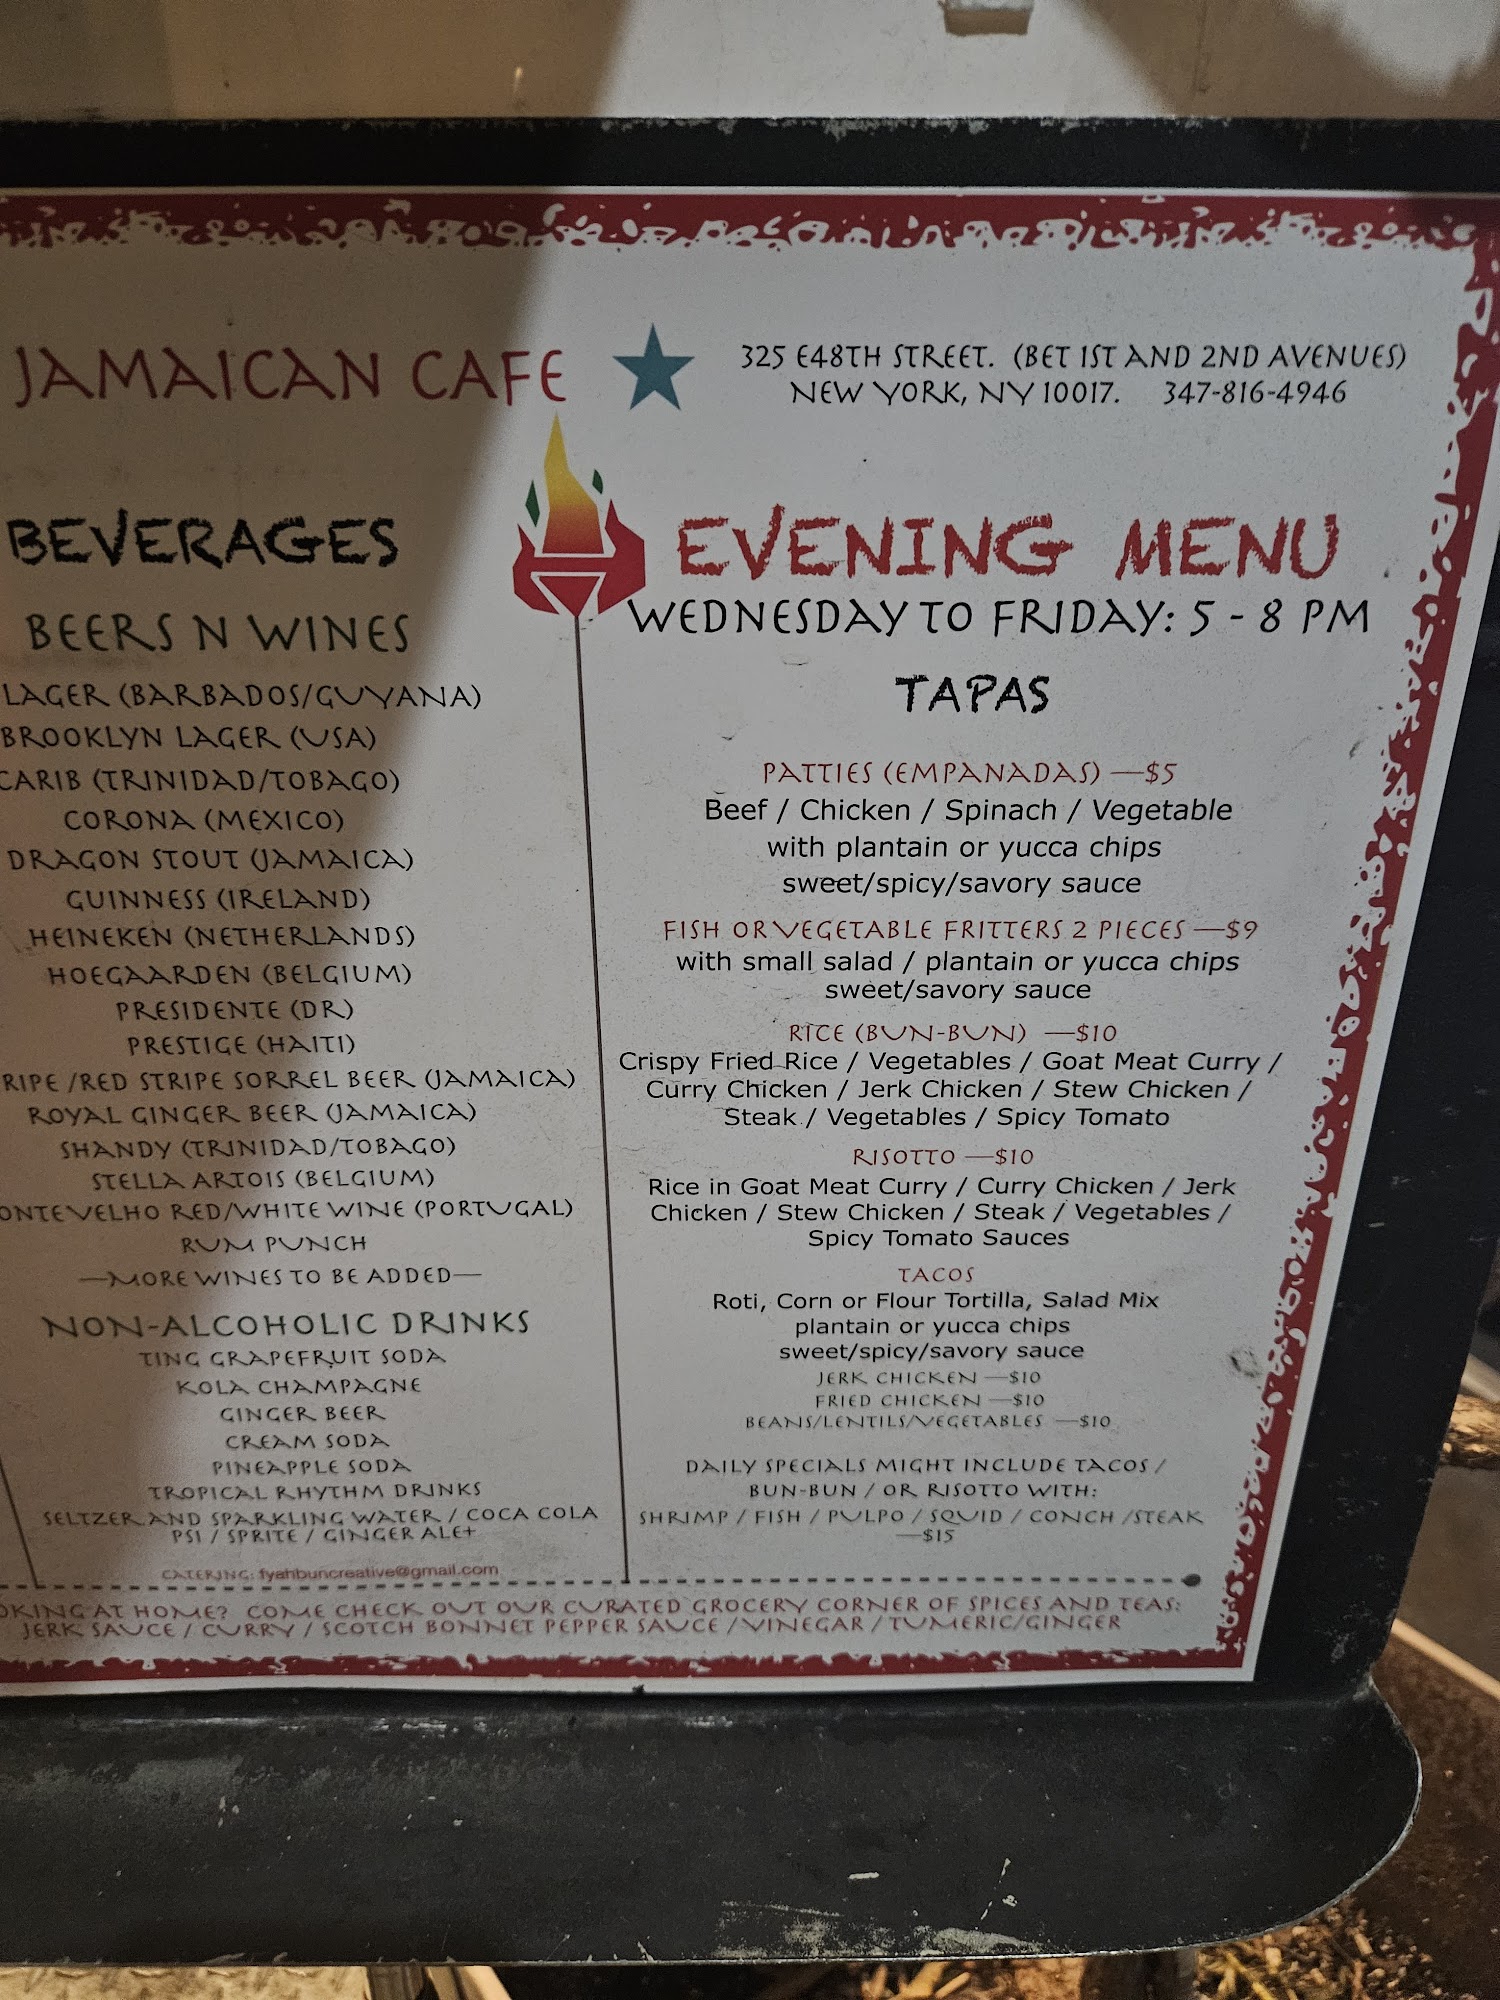 JAMAICAN CAFE
325 E48TH STREET. (BET 1ST AND 2ND AVENUES)
NEW YORK, NY 10017. 347-816-4946
BEVERAGES
BEERS N WINES
LAGER (BARBADOS/GUYANA)
BROOKLYN LAGER (USA)
CARIB (TRINIDAD/TOBAGO)
CORONA (MEXICO)
DRAGON STOUT (JAMAICA)
GUINNESS (IRELAND)
HEINEKEN (NETHERLANDS)
HOEGAARDEN (BELGIUM)
PRESIDENTE (DR)
PRESTIGE (HAITI)
RIPE /RED STRIPE SORREL BEER (JAMAICA)
ROYAL GINGER BEER (JAMAICA)
SHANDY (TRINIDAD/TOBAGO)
STELLA ARTOIS (BELGIUM)
ONTEVELHO RED/WHITE WINE (PORTUGAL)
RUM PUNCH
—MORE WINES TO BE ADDED—
NON-ALCOHOLIC DRINKS
TING GRAPEFRUIT SODA
KOLA CHAMPAGNE
GINGER BEER
CREAM SODA
PINEAPPLE SODA
TROPICAL RHYTHM DRINKS
SELTZER AND SPARKLING WATER / COCA COLA
PSI / SPRITE / GINGER ALE+
CATERING: fyahbuncreative@gmail.com
EVENING MENU
WEDNESDAY TO FRIDAY: 5 - 8 PM
TAPAS
PATTIES (EMPANADAS) —$5
Beef / Chicken / Spinach / Vegetable
with plantain or yucca chips
sweet/spicy/savory sauce
FISH OR VEGETABLE FRITTERS 2 PIECES —$9
with small salad / plantain or yucca chips
sweet/savory sauce
RICE (BUN-BUN) —$10
Crispy Fried Rice / Vegetables / Goat Meat Curry /
Curry Chicken / Jerk Chicken / Stew Chicken /
Steak / Vegetables / Spicy Tomato
RISOTTO —$10
Rice in Goat Meat Curry / Curry Chicken / Jerk
Chicken / Stew Chicken / Steak / Vegetables /
Spicy Tomato Sauces
TACOS
Roti, Corn or Flour Tortilla, Salad Mix
plantain or yucca chips
sweet/spicy/savory sauce
JERK CHICKEN —$10
FRIED CHICKEN —$10
BEANS/LENTILS/VEGETABLES —$10
DAILY SPECIALS MIGHT INCLUDE TACOS /
BUN-BUN / OR RISOTTO WITH:
SHRIMP / FISH / PULPO / SQUID / CONCH /STEAK
—$15
OKING AT HOME? COME CHECK OUT OUR CURATED GROCERY CORNER OF SPICES AND TEAS:
JERK SAUCE / CURRY / SCOTCH BONNET PEPPER SAUCE / VINEGAR / TUMERIC/GINGER